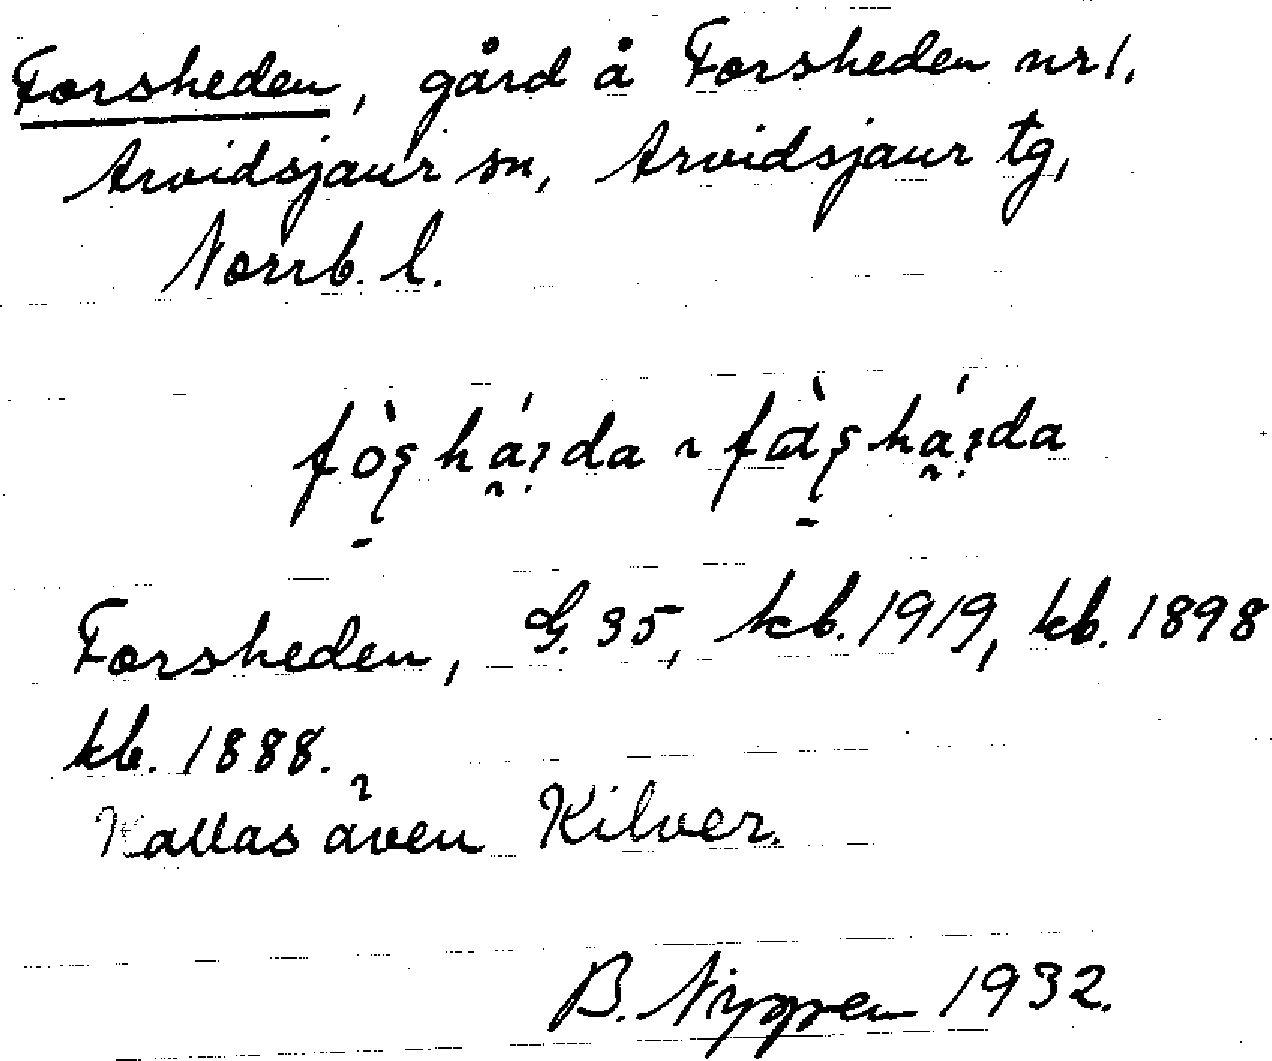 Forsheden, gård å Forsheden nr 1,
Arvidsjaur sn, Arvidsjaur tg,
Norrb. l.
Forsheden, G. 35, kb. 1919, kb. 1898
kb. 1888.
Kallas även Kilver.
B. Nygren 1932.